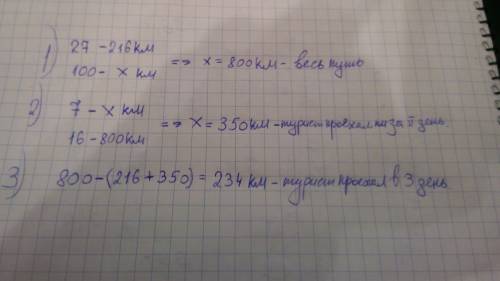 1) 27 - 216 км
100 - x км => x = 800 км - весь путь
2) 7 - x км
16 - 800 км => x = 350 км - турист проехал за II день.
3) 800 - (216 + 350) = 234 км - турист проехал в 3 день